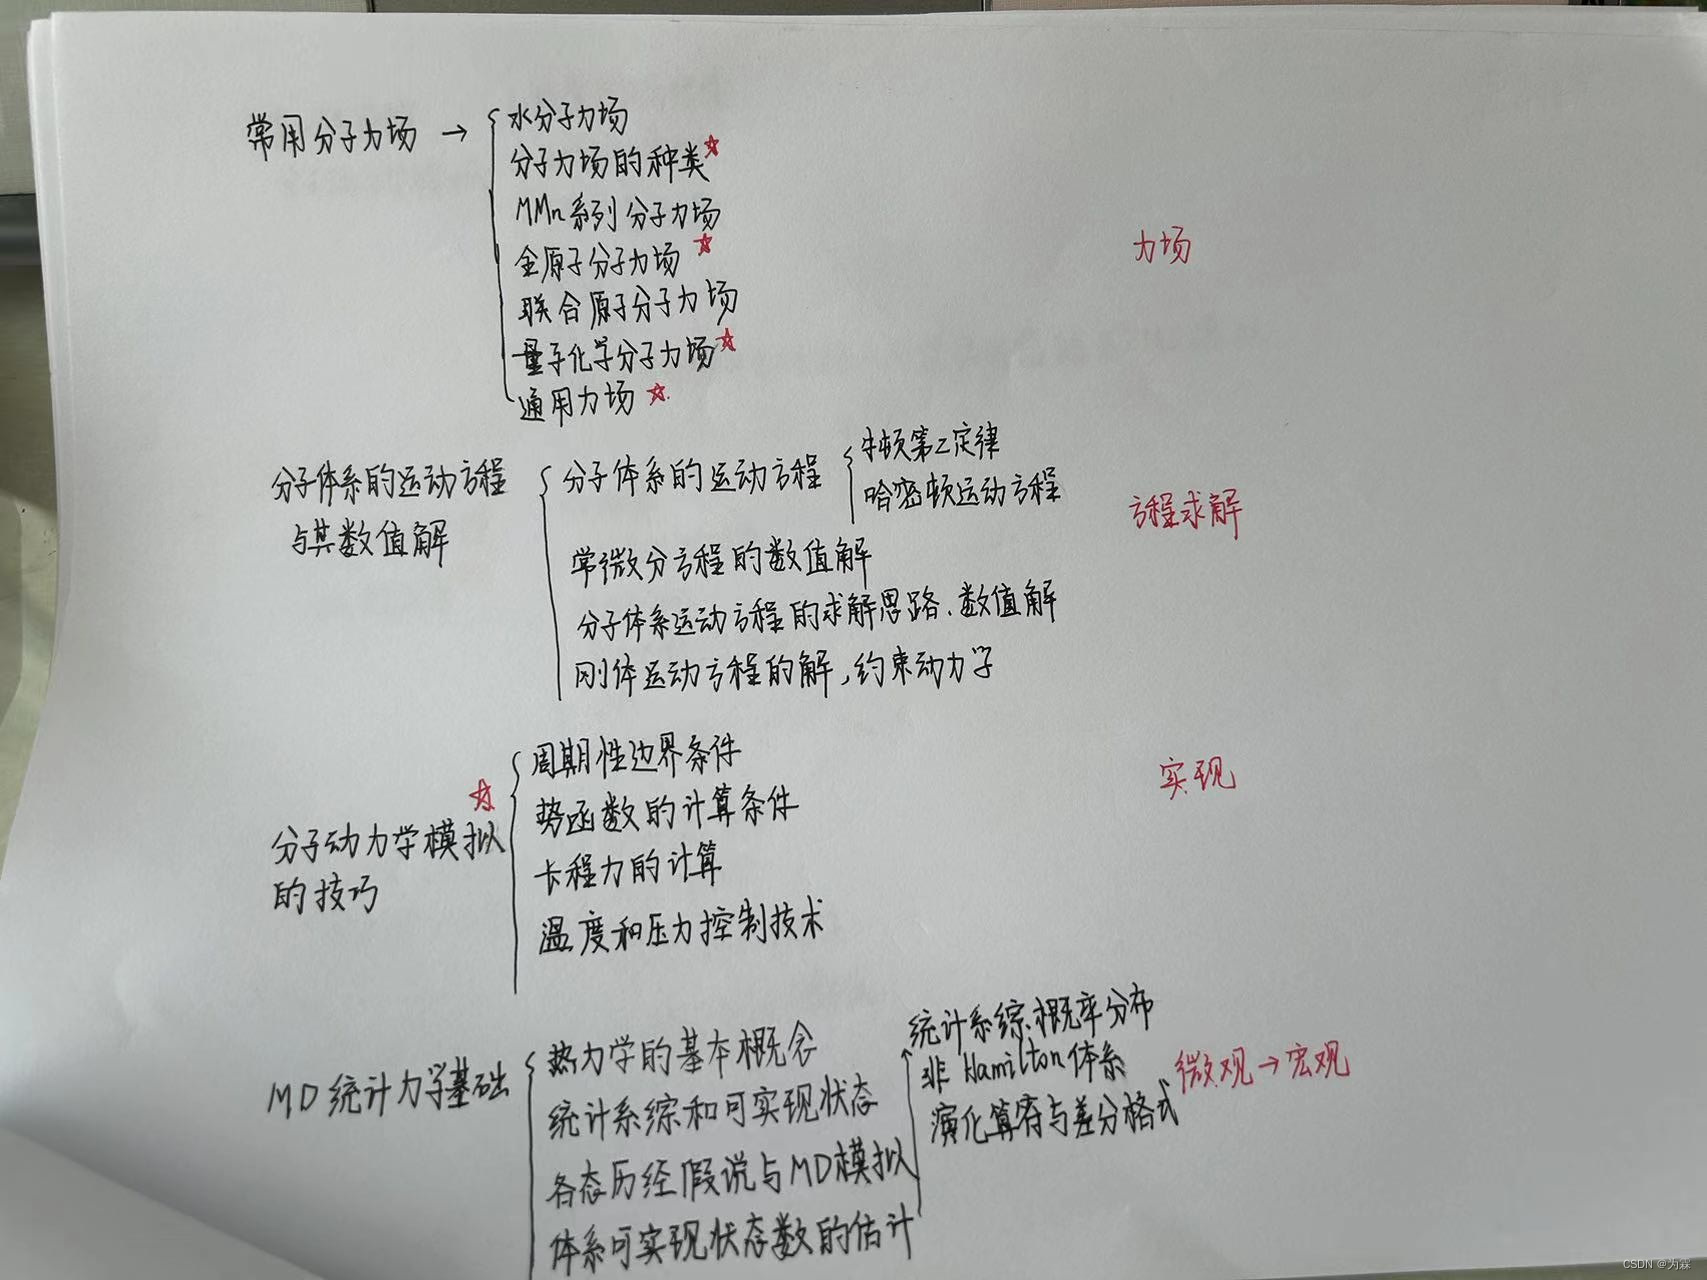 常用分子力场 →
水分子力场
分子力场的种类☆
MMn系列分子力场
全原子分子力场 ☆
联合原子分子力场
量子化学分子力场☆
通用力场 ☆
力场
分子体系的运动方程
与其数值解
分子体系的运动方程
牛顿第二定律
哈密顿运动方程
常微分方程的数值解
分子体系运动方程的求解思路、数值解
刚体运动方程的解,约束动力学
方程求解
☆
分子动力学模拟
的技巧
周期性边界条件
势函数的计算条件
卡程力的计算
温度和压力控制技术
实现
MD统计力学基础
热力学的基本概念
统计系综和可实现状态
各态历经假说与MD模拟
体系可实现状态数的估计
统计系综概率分布
非Hamilton体系
演化算符与差分格式
微观→宏观
CSDN @为霖